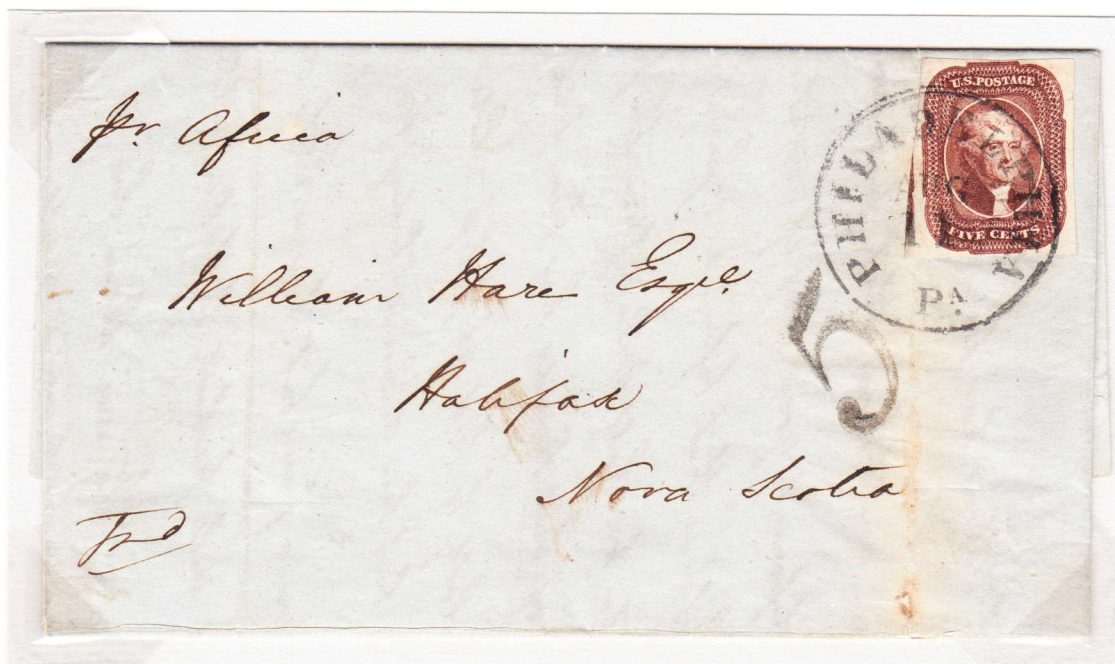 pr. Africa
U.S. POSTAGE
FIVE CENTS
PHILADELPHIA
PA
William Hare Esqr.
5
Halifax
Nova Scotia